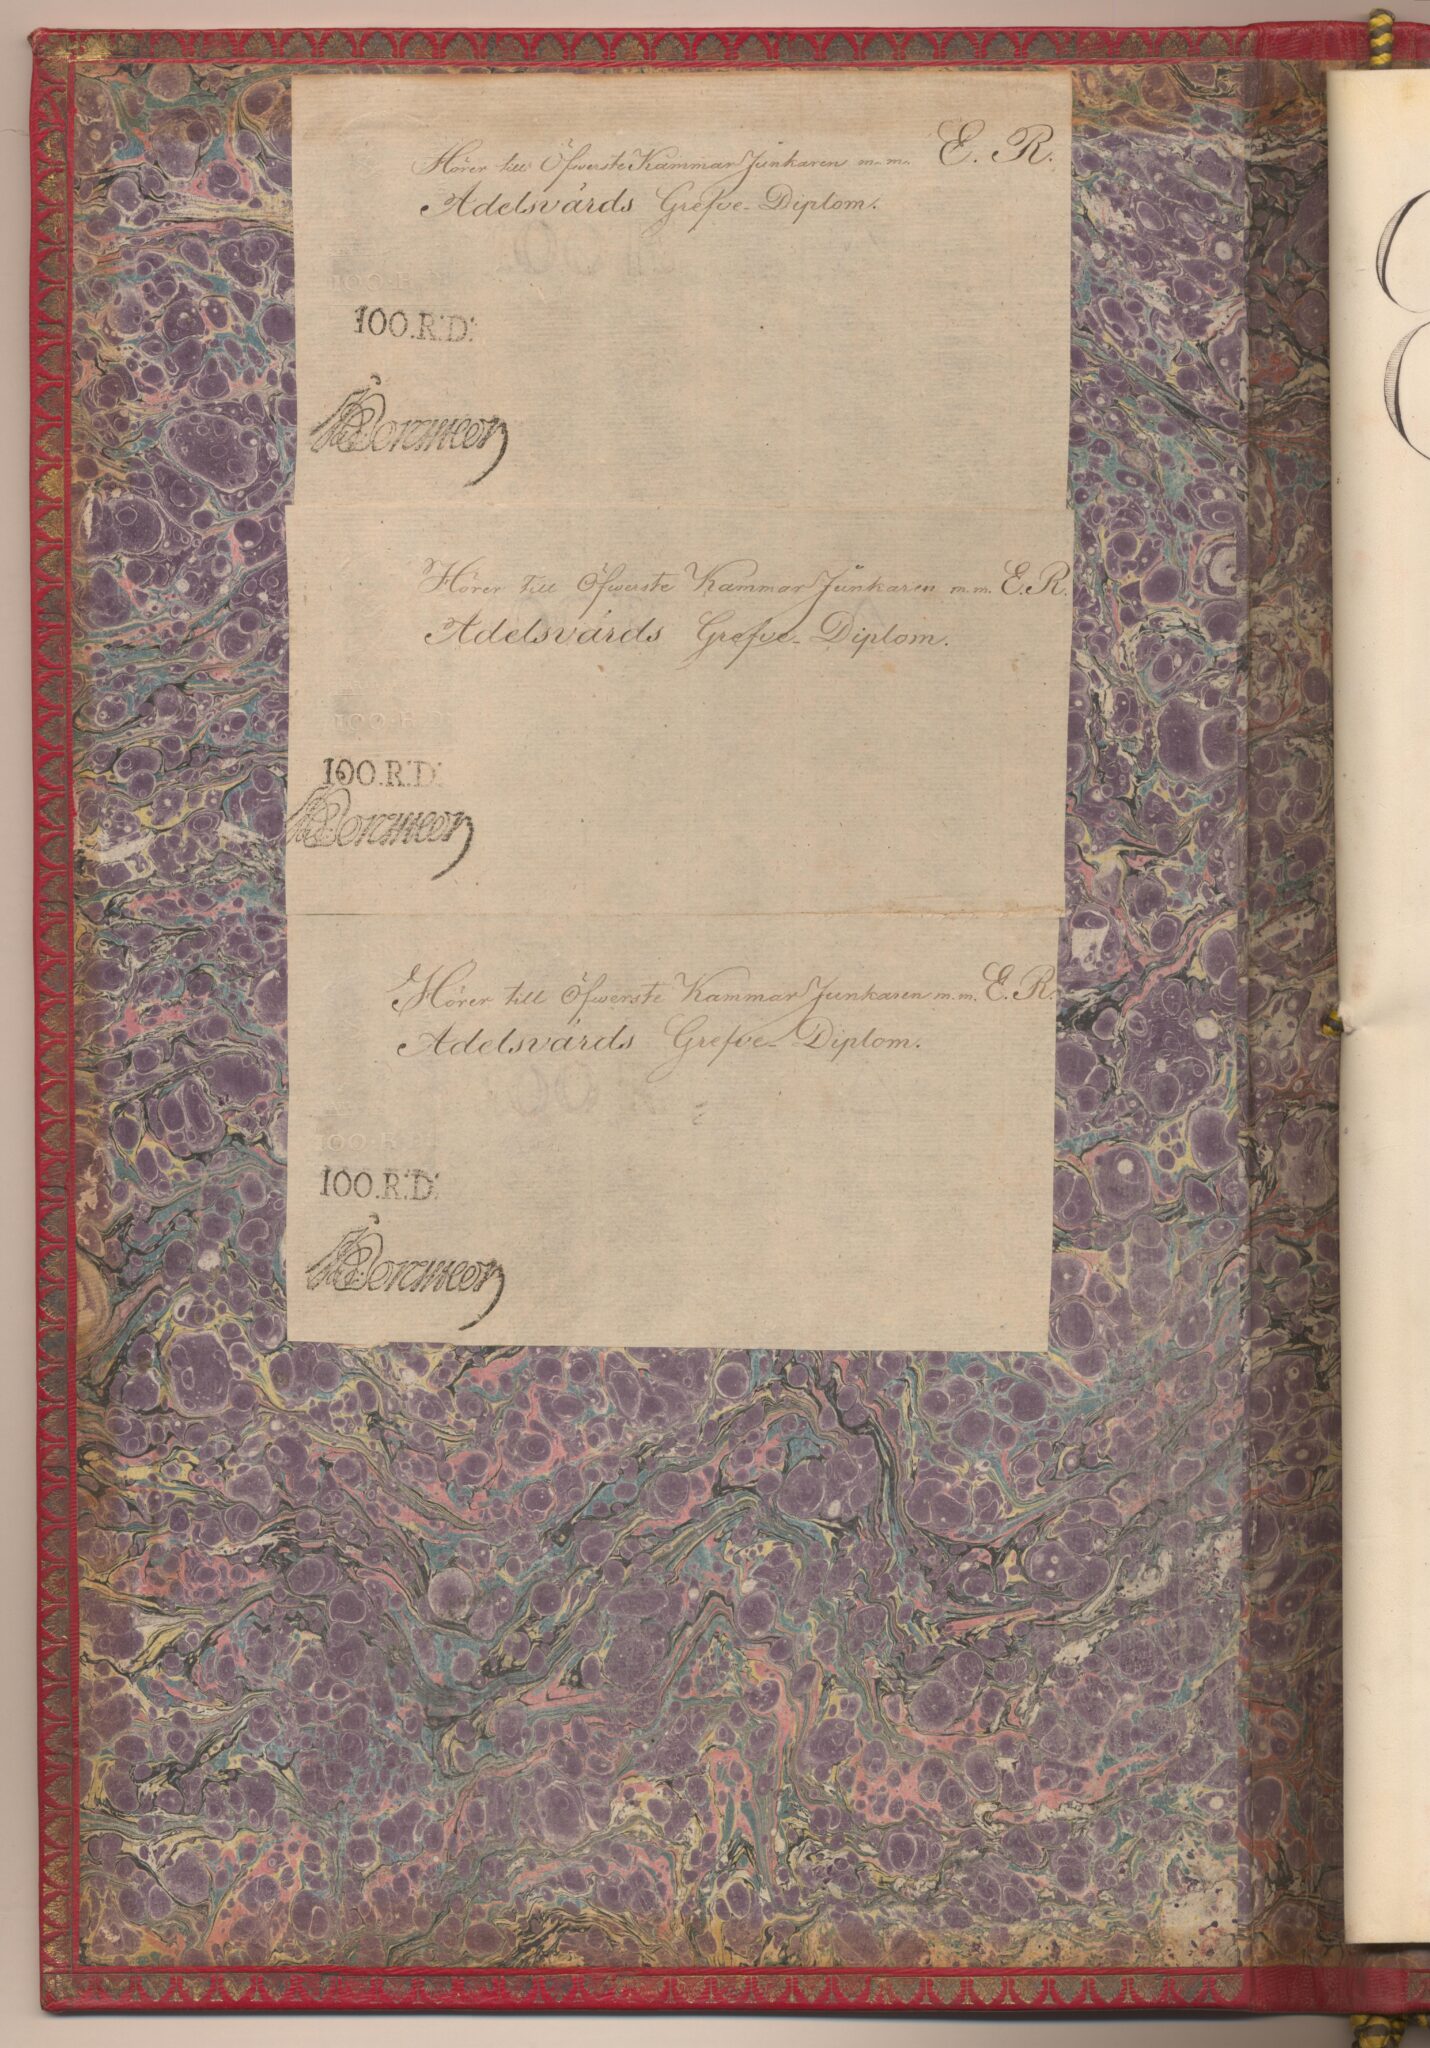 Hörer till Öfwerste Kammar Junkaren m. m. E. R.
Adelsvärds Grefve-Diplom.
100.R:D:
Hörer till Öfwerste Kammar Junkaren m. m. E. R.
Adelsvärds Grefve-Diplom.
100.R:D:
Hörer till Öfwerste Kammar Junkaren m. m. E. R.
Adelsvärds Grefve-Diplom.
100.R:D: